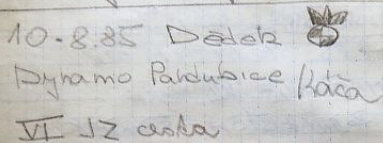 10.8.85 Dědek
Dynamo Pardubice Káča
VI JZ cesta